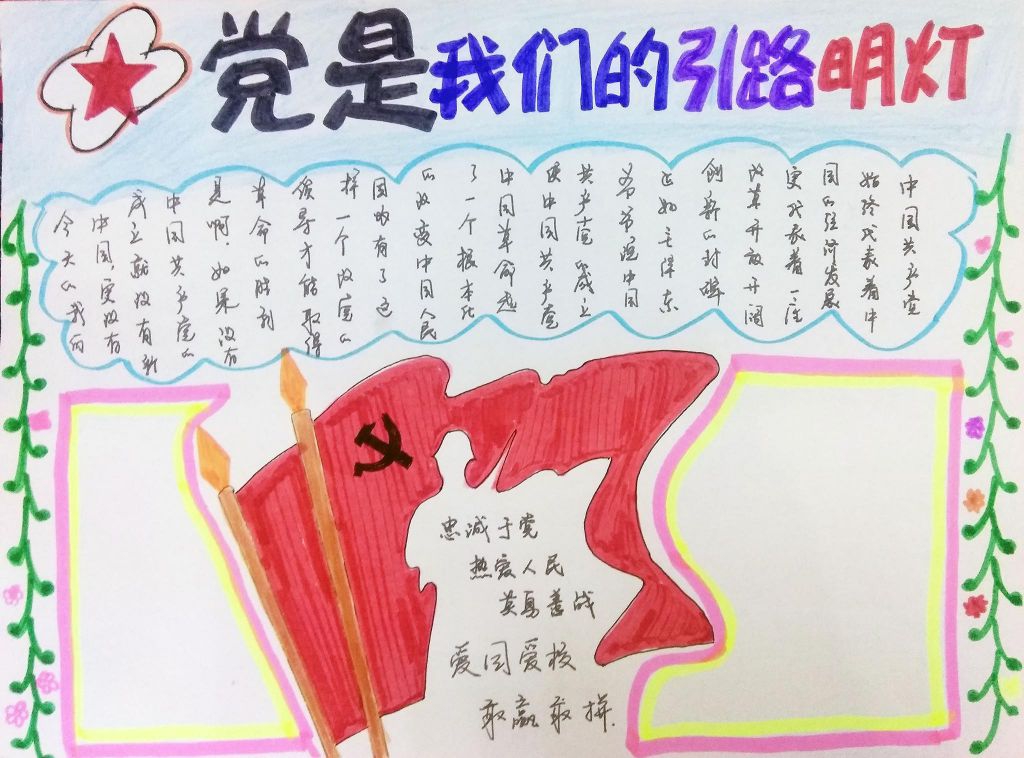 党是我们的引路明灯
中国共产党
始终代表着中
国的经济发展
更代表着一
改革开放开阔
创新的碑
正如毛泽东
爷爷 中国
共产党的成立
中国共产党
中国革命起
了一个根本化
的改变中国人民
国的有了这
样一个政党的
领导才能取得
革命的胜利
是啊，如果没有
中国共产党的
成立就没有新
中国，更没有
今天的我们
忠诚于党
热爱人民
英勇善战
爱国爱校
敢赢敢拼.